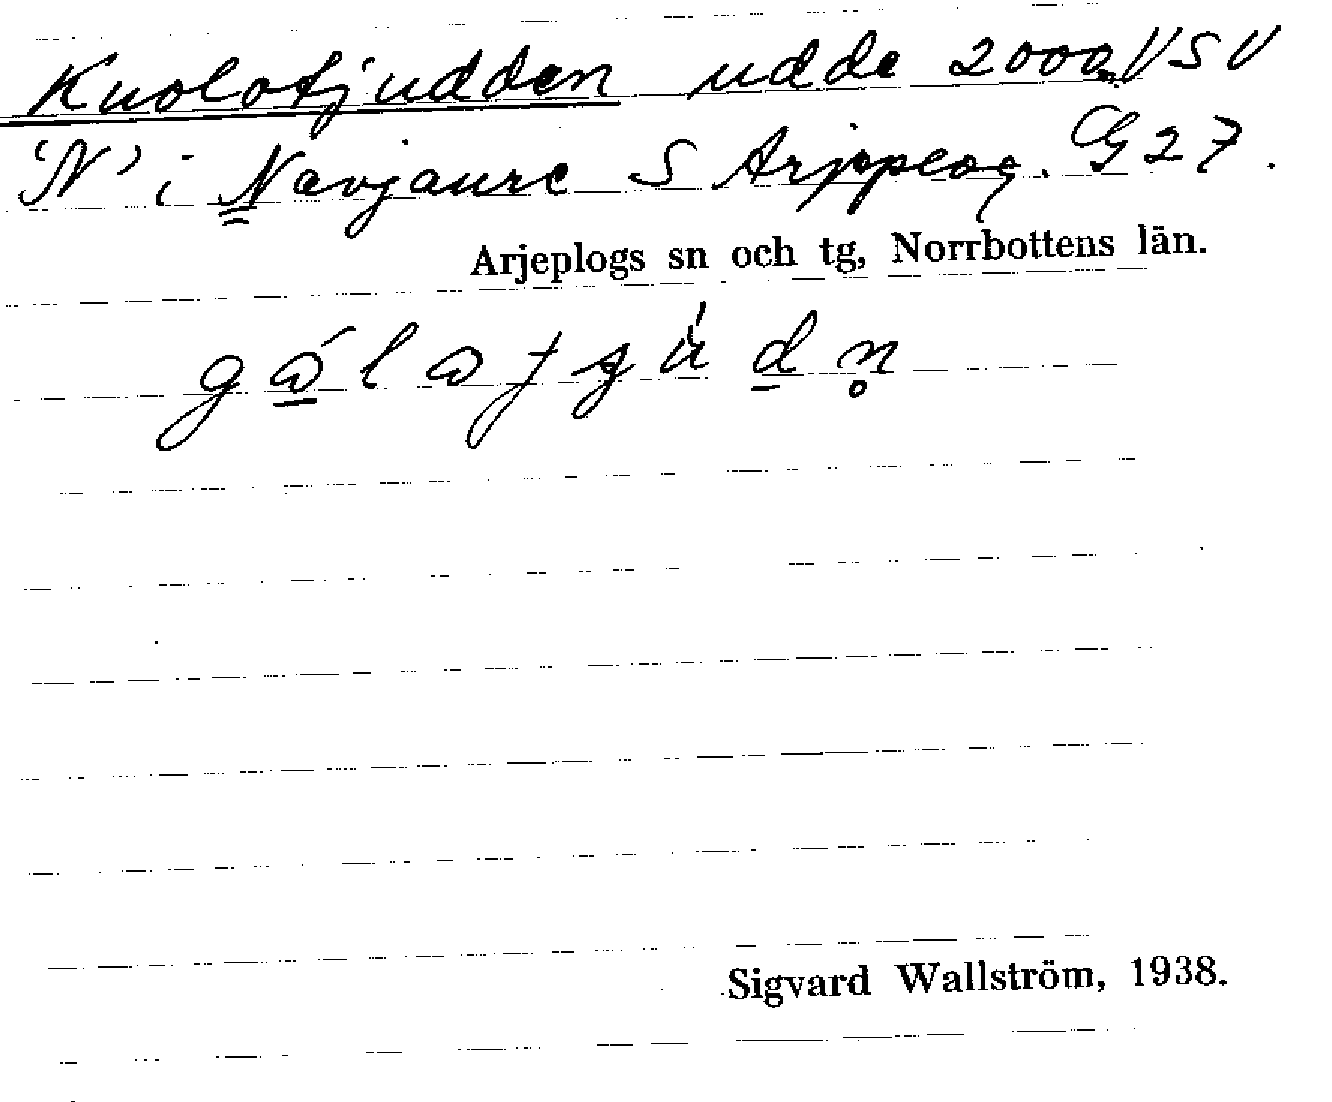 Kuolotjudden udde 2000 VSV
'N' i Navjaure S Arjpplog. G27.
Arjeplogs sn och tg, Norrbottens län.
Sigvard Wallström, 1938.